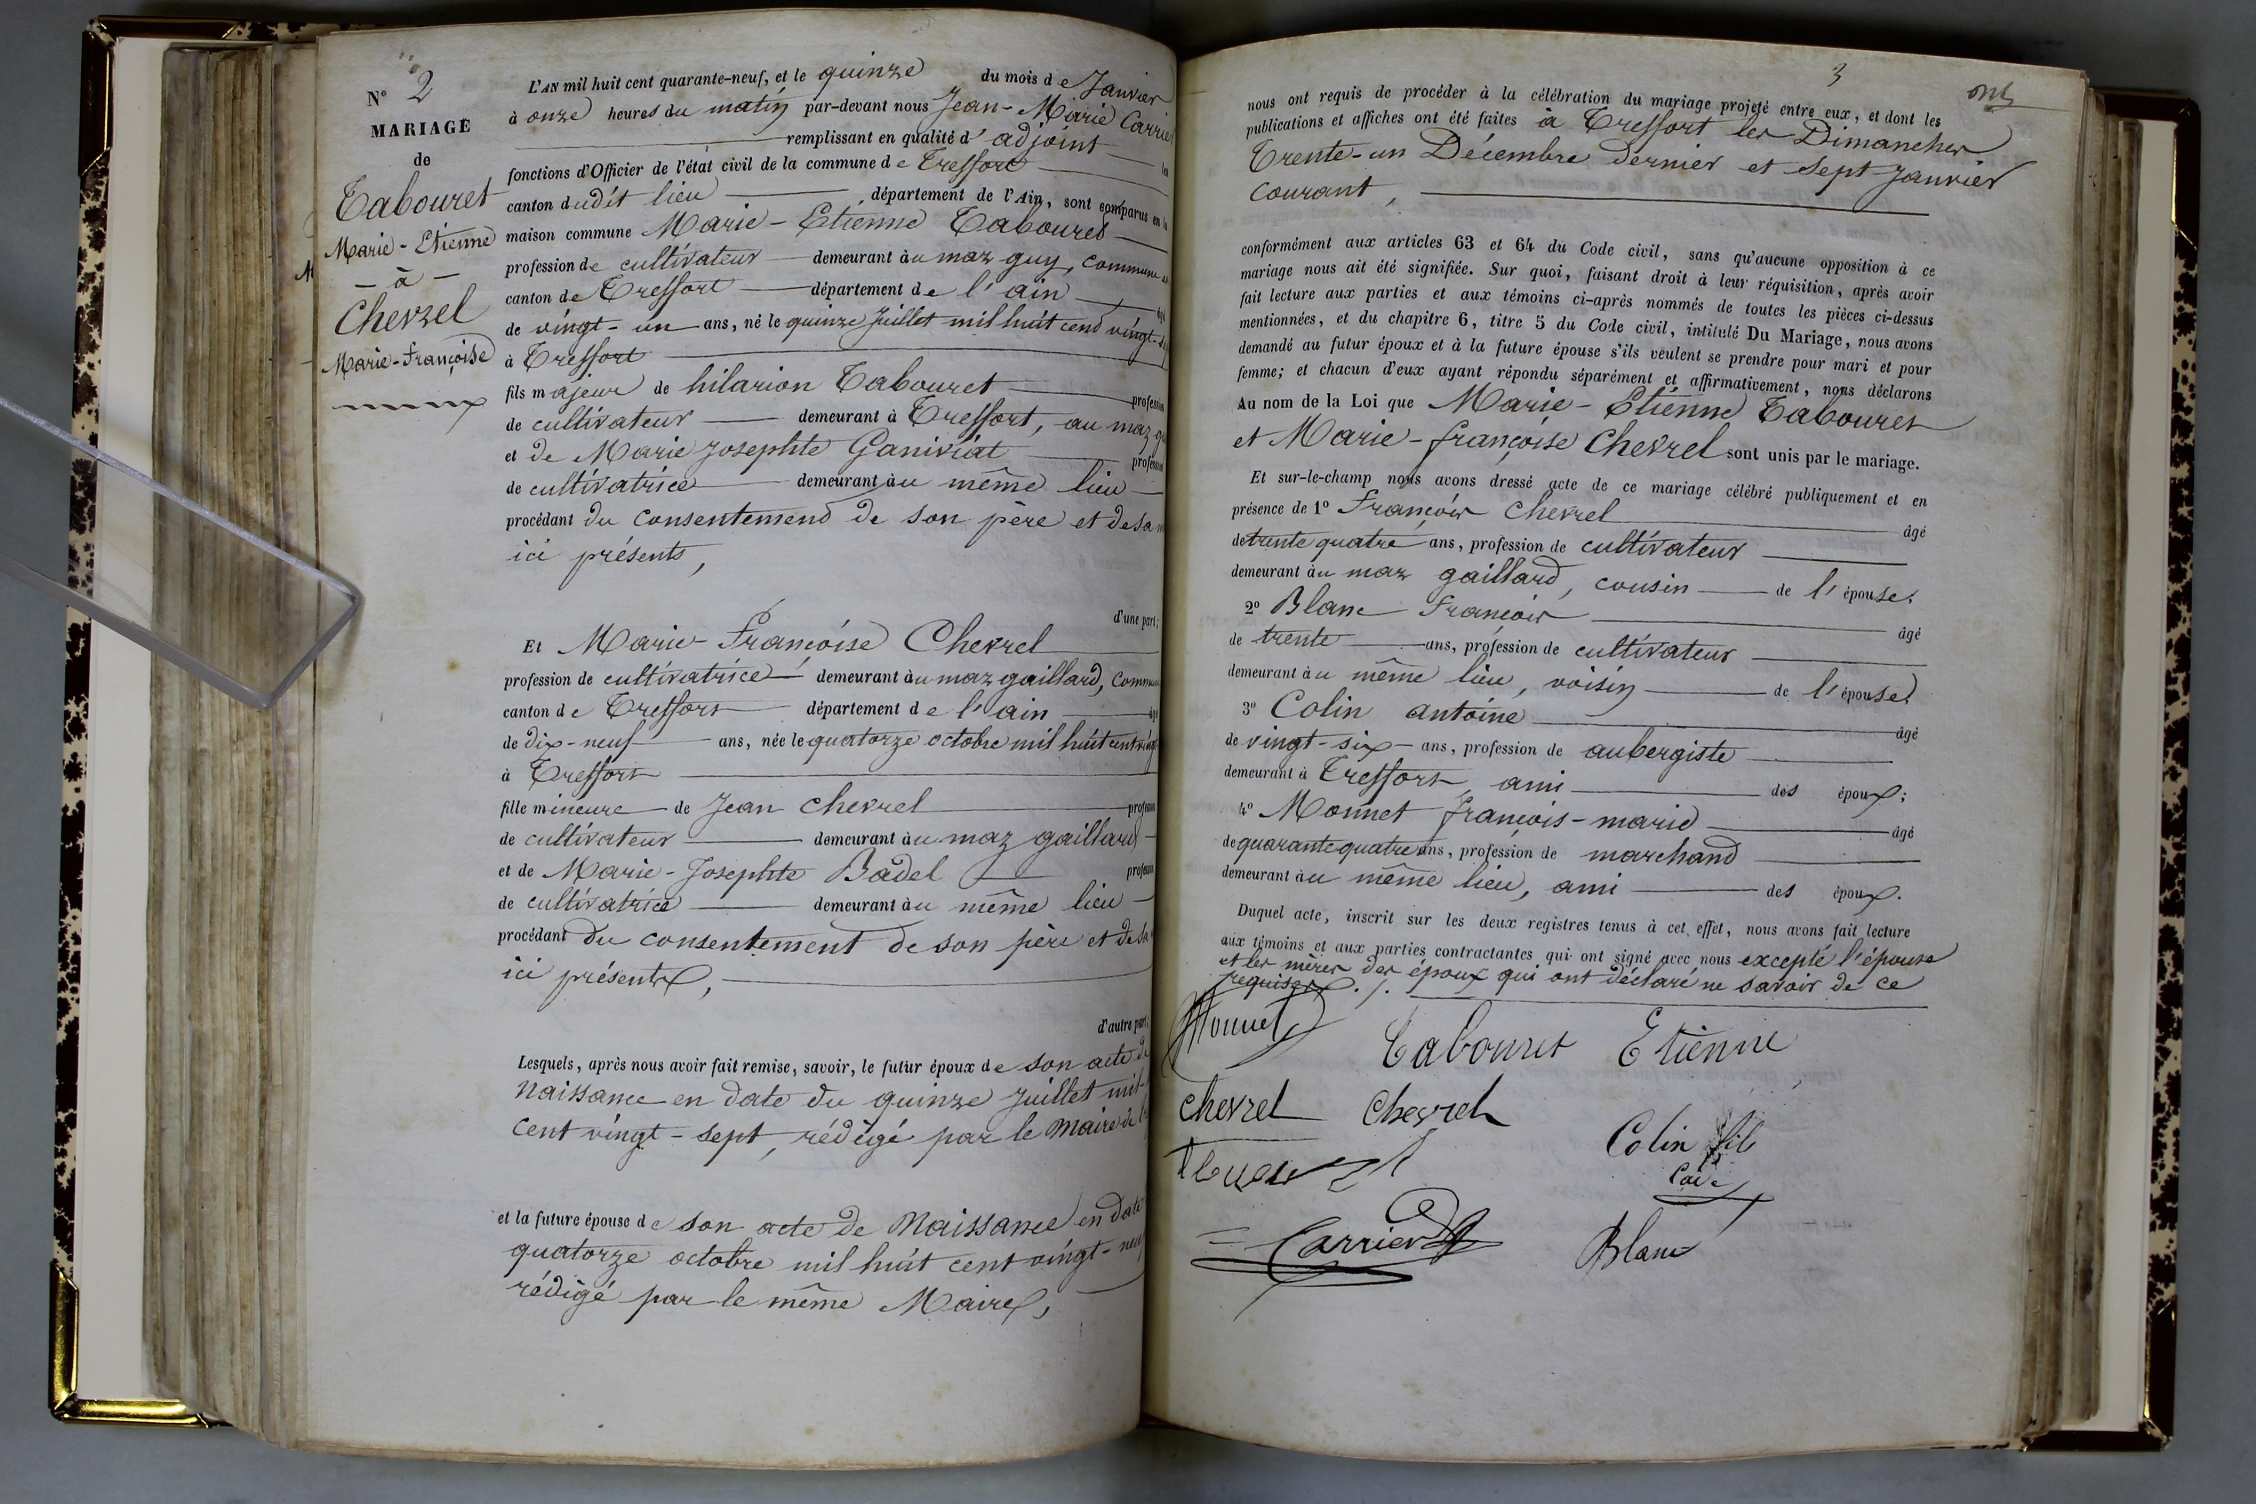 N° 2
MARIAGE
de
Tabouret
Marie-Etienne
- à -
Chevrel
Marie-Françoise
L'AN mil huit cent quarante-neuf, et le quinze du mois de Janvier
à onze heures du matin par-devant nous Jean-Marie Carrier
remplissant en qualité d'adjoint les
fonctions d'Officier de l'état civil de la commune de Treffort
canton dudit lieu département de l'Ain, sont comparus en la
maison commune Marie-Etienne Tabouret
profession de cultivateur demeurant au maz guy, commune et
canton de Treffort département de l'ain âgé
de vingt-un ans, né le quinze Juillet mil huit cent vingt-sept
à Treffort
fils majeur de hilarion Tabouret profession
de cultivateur demeurant à Treffort, au maz guy
et de Marie Josephte Ganiviat profession
de cultivatrice demeurant au même lieu
procédant du consentement de son père et de sa
ici présents,
d'une part;
Et Marie-Françoise Chevrel
profession de cultivatrice demeurant au maz gaillard, commune
canton de Treffort département de l'ain âgé
de dix-neuf ans, née le quatorze octobre mil huit cent vingt
à Treffort
fille mineure de Jean Chevrel profession
de cultivateur demeurant au maz gaillard
et de Marie-Josephte Badel profession
de cultivatrice demeurant au même lieu
procédant du consentement de son père et de sa
ici présents,
d'autre part;
Lesquels, après nous avoir fait remise, savoir, le futur époux de son acte de
Naissance en date du quinze Juillet mil
cent vingt-sept, rédigé par le Maire de
et la future épouse de son acte de Naissance en date
quatorze octobre mil huit cent vingt-neuf
rédigé par le même Maire,
3
nous ont requis de procéder à la célébration du mariage projeté entre eux, et dont les
publications et affiches ont été faites à Treffort les Dimanches
Trente-un Décembre dernier et sept Janvier
courant,
conformément aux articles 63 et 64 du Code civil, sans qu'aucune opposition à ce
mariage nous ait été signifiée. Sur quoi, faisant droit à leur réquisition, après avoir
fait lecture aux parties et aux témoins ci-après nommés de toutes les pièces ci-dessus
mentionnées, et du chapitre 6, titre 5 du Code civil, intitulé Du Mariage, nous avons
demandé au futur époux et à la future épouse s'ils veulent se prendre pour mari et pour
femme; et chacun d'eux ayant répondu séparément et affirmativement, nous déclarons
Au nom de la Loi que Marie-Etienne Tabouret
et Marie-françoise Chevrel sont unis par le mariage.
Et sur-le-champ nous avons dressé acte de ce mariage célébré publiquement et en
présence de 1° François Chevrel âgé
de trente quatre ans, profession de cultivateur
demeurant au maz gaillard, cousin de l'épouse.
2° Blanc François âgé
de trente ans, profession de cultivateur
demeurant au même lieu, voisin de l'épouse.
3° Colin antoine âgé
de vingt-six ans, profession de aubergiste
demeurant à Treffort, ami des époux;
4° Monnet françois-marie âgé
de quarante quatre ans, profession de marchand
demeurant au même lieu, ami des époux.
Duquel acte, inscrit sur les deux registres tenus à cet effet, nous avons fait lecture
aux témoins et aux parties contractantes qui ont signé avec nous excepté l'épouse
et les mères des époux qui ont déclaré ne savoir de ce
requises ./.
Monnet
Tabouret Etienne
Chevrel Chevrel
Colin fils
Carrier
Blanc